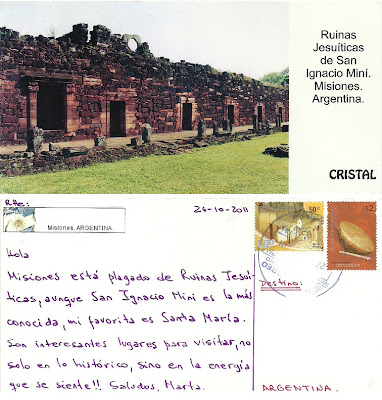 Ruinas
Jesuíticas
de San
Ignacio Miní.
Misiones.
Argentina.
CRISTAL
Rtte:
26-10-2011
Misiones. ARGENTINA.
50c
Hola
Misiones está plagado de Ruinas Jesuí-
ticas, aunque San Ignacio Mini es la más
conocida, mi favorita es Santa María.
Son interesantes lugares para visitar, no
solo en lo histórico, sino en la energía
que se siente!! Saludos, Marta.
Destino:
ARGENTINA.